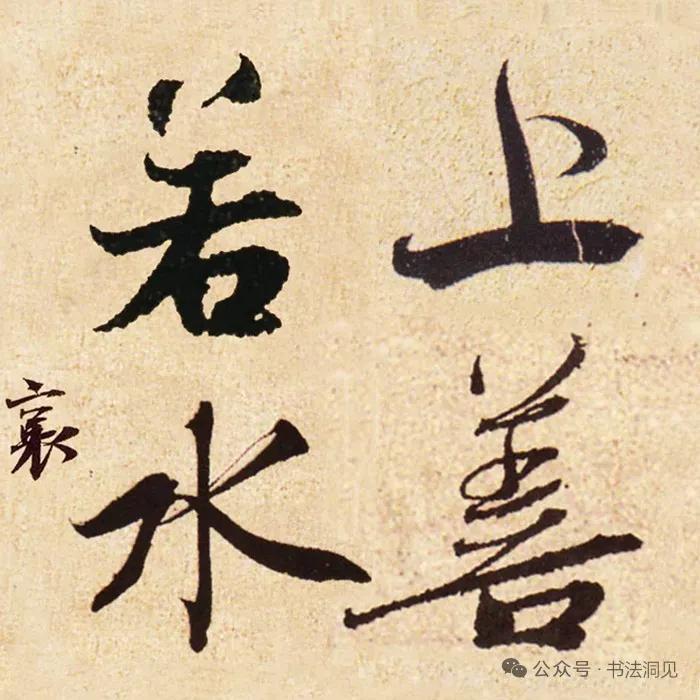 上善
若水
襄
公众号·书法洞见